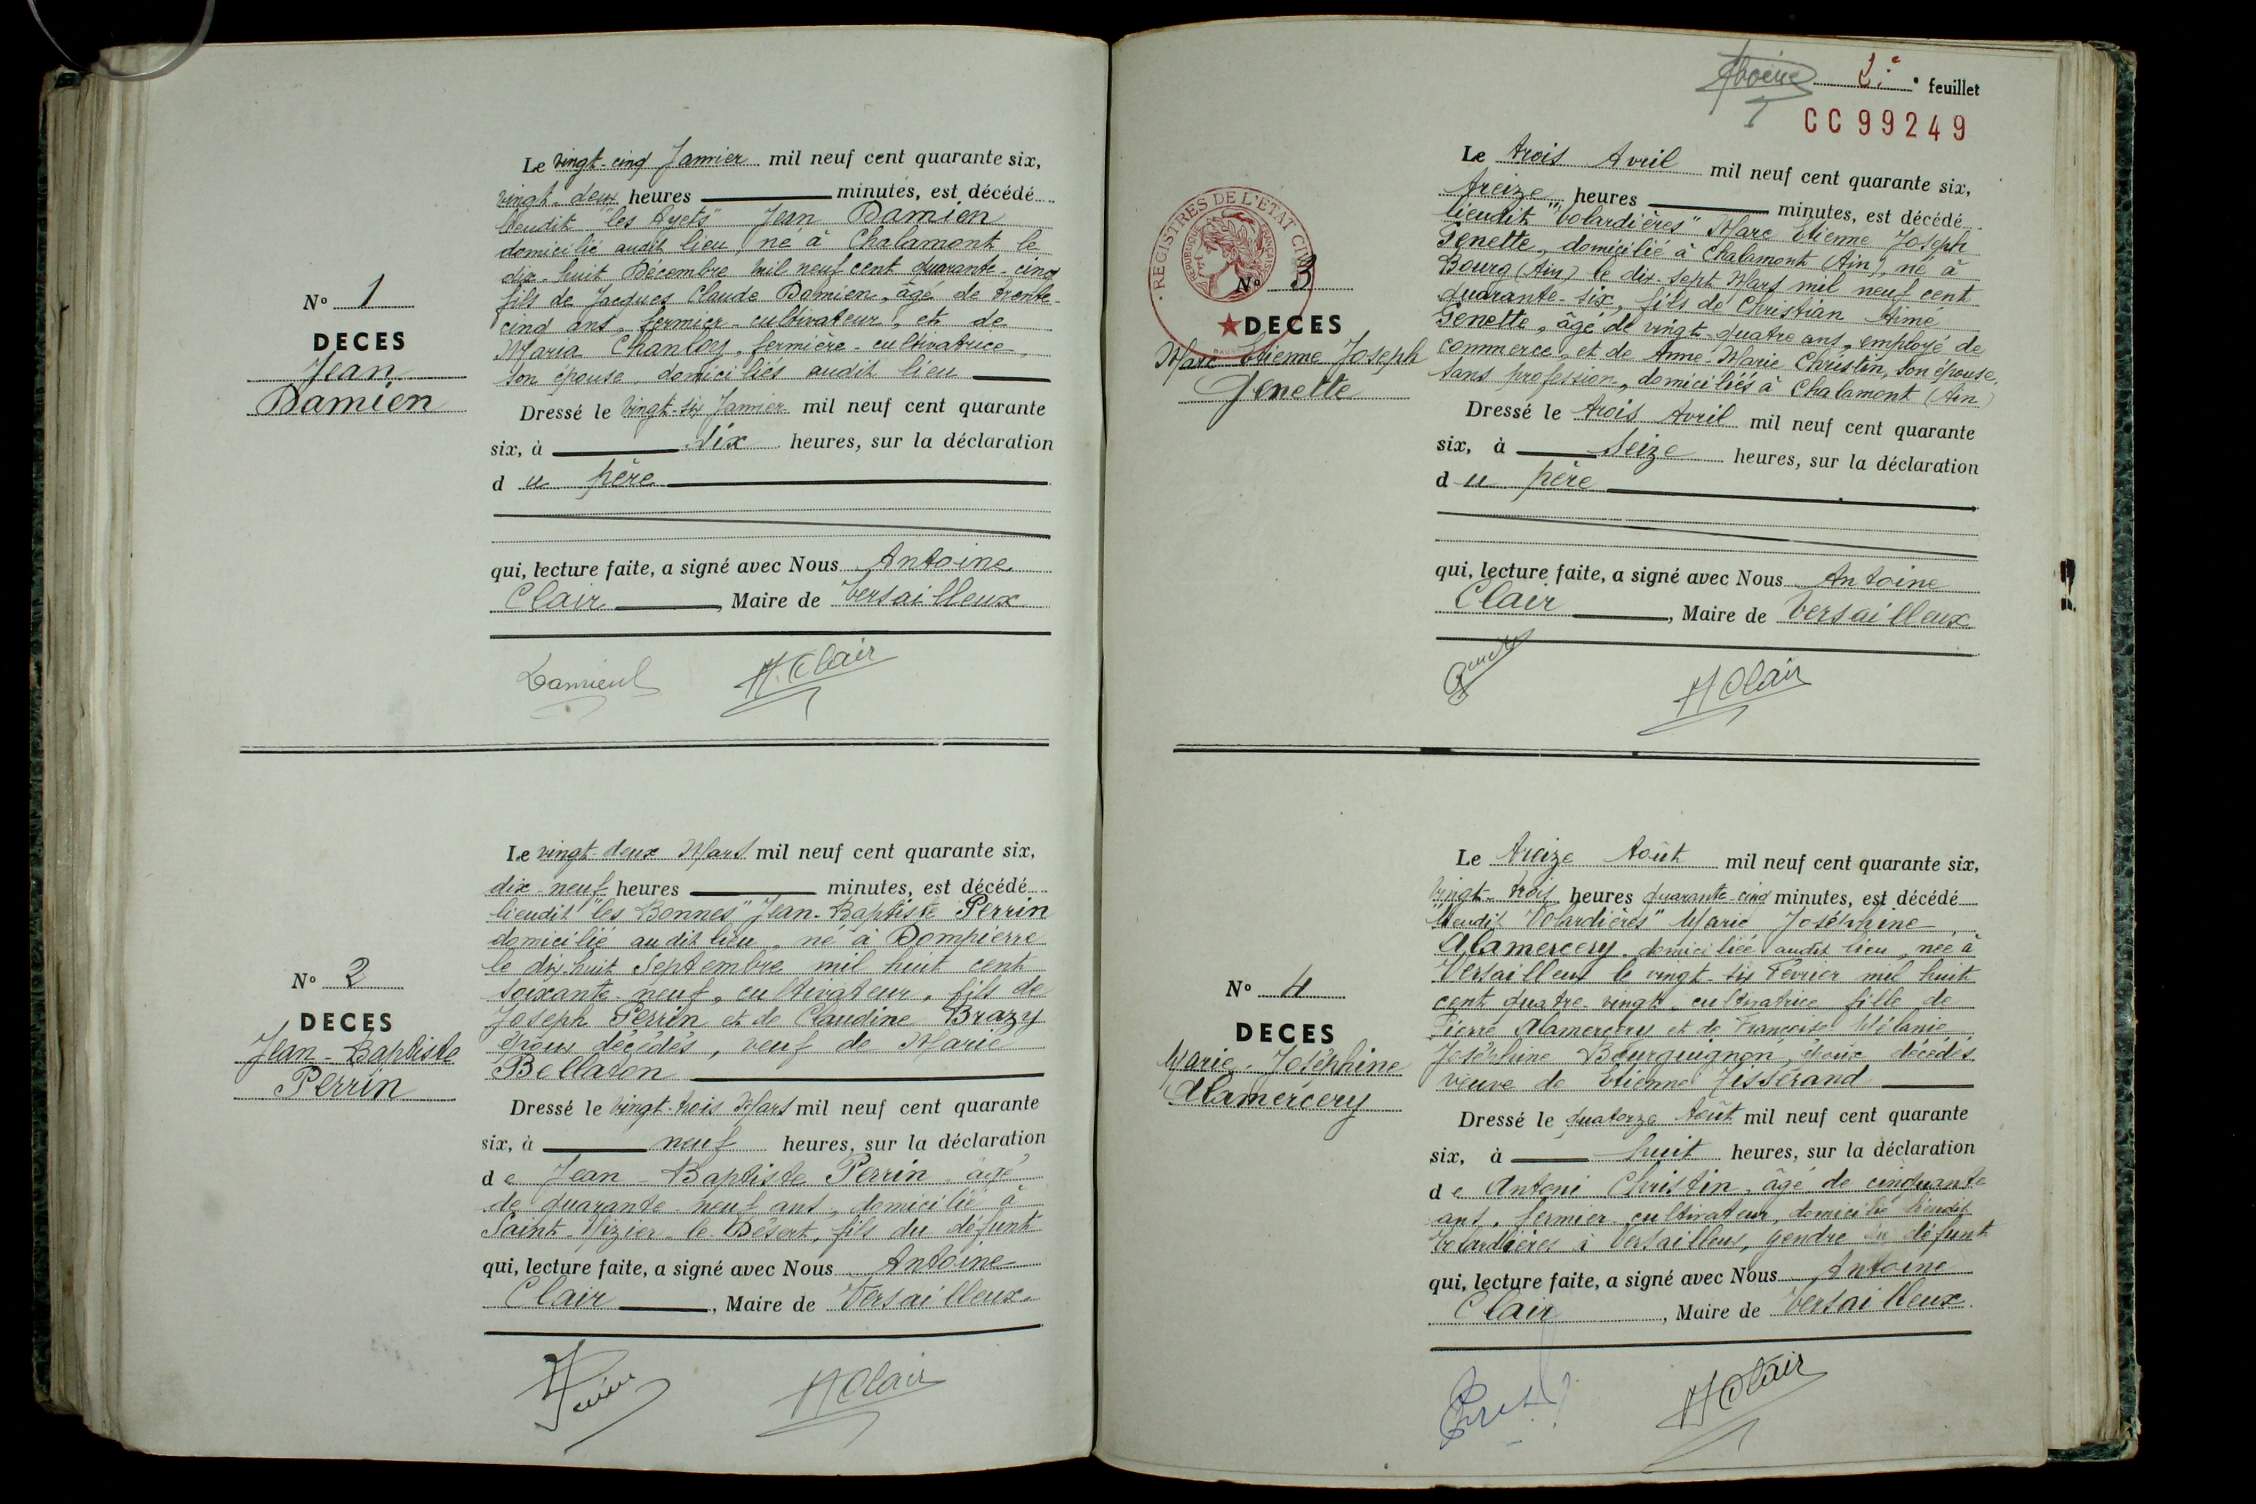 Le vingt-cinq Janvier mil neuf cent quarante six,
vingt-deux heures minutes, est décédé
lieudit "les Ayets" Jean Damien
domicilié audit lieu, né à Chalamont le
dix-huit Décembre mil neuf cent quarante-cinq
fils de Jacques Claude Damien, âgé de trente-
cinq ans, fermier-cultivateur, et de
Maria Chanloy, fermière-cultivatrice,
son épouse, domiciliés audit lieu
N° 1
DECES
Jean
Damien
Dressé le vingt-six Janvier mil neuf cent quarante
six, à dix heures, sur la déclaration
du père
qui, lecture faite, a signé avec Nous Antoine
Clair, Maire de Versailleux
Damien
A Clair
Le vingt-deux Mars mil neuf cent quarante six,
dix-neuf heures minutes, est décédé
lieudit "les Bonnes" Jean-Baptiste Perrin
domicilié audit lieu, né à Dompierre
le dix-huit Septembre mil huit cent
soixante-neuf, cultivateur, fils de
Joseph Perrin et de Claudine Brazy
époux décédés, veuf de Marie
Bellaton
N° 2
DECES
Jean-Baptiste
Perrin
Dressé le vingt-trois Mars mil neuf cent quarante
six, à neuf heures, sur la déclaration
de Jean-Baptiste Perrin, âgé
de quarante-neuf ans, domicilié à
Saint-Nizier-le-Désert, fils du défunt
qui, lecture faite, a signé avec Nous Antoine
Clair, Maire de Versailleux
A Clair
2e feuillet
CC99249
Le trois Avril mil neuf cent quarante six,
treize heures minutes, est décédé
lieudit "Volardières" Marc Etienne Joseph
Genette, domicilié à Chalamont (Ain), né à
Bourg (Ain) le dix-sept Mars mil neuf cent
quarante-six, fils de Christian Aimé
Genette, âgé de vingt-quatre ans, employé de
commerce, et de Anne-Marie Christin, son épouse,
sans profession, domiciliés à Chalamont (Ain)
REGISTRES DE L'ETAT CIVIL
REPUBLIQUE FRANÇAISE
N° 3
DECES
Marc Etienne Joseph
Genette
Dressé le trois Avril mil neuf cent quarante
six, à seize heures, sur la déclaration
du père
qui, lecture faite, a signé avec Nous Antoine
Clair, Maire de Versailleux
A Clair
Le treize Août mil neuf cent quarante six,
vingt-trois heures quarante-cinq minutes, est décédé
lieudit "Volardières" Marie Joséphine
Alamercery, domiciliée audit lieu, née à
Versailleux le vingt-six Février mil huit
cent quatre-vingt, cultivatrice, fille de
Pierre Alamercery et de Françoise Mélanie
Joséphine Bourguignon, époux décédés,
veuve de Etienne Tisserand
N° 4
DECES
Marie-Joséphine
Alamercery
Dressé le quatorze Août mil neuf cent quarante
six, à huit heures, sur la déclaration
de Antoni Christin, âgé de cinquante
ans, fermier-cultivateur, domicilié lieudit
Volardières à Versailleux, gendre du défunt
qui, lecture faite, a signé avec Nous Antoine
Clair, Maire de Versailleux
A Clair